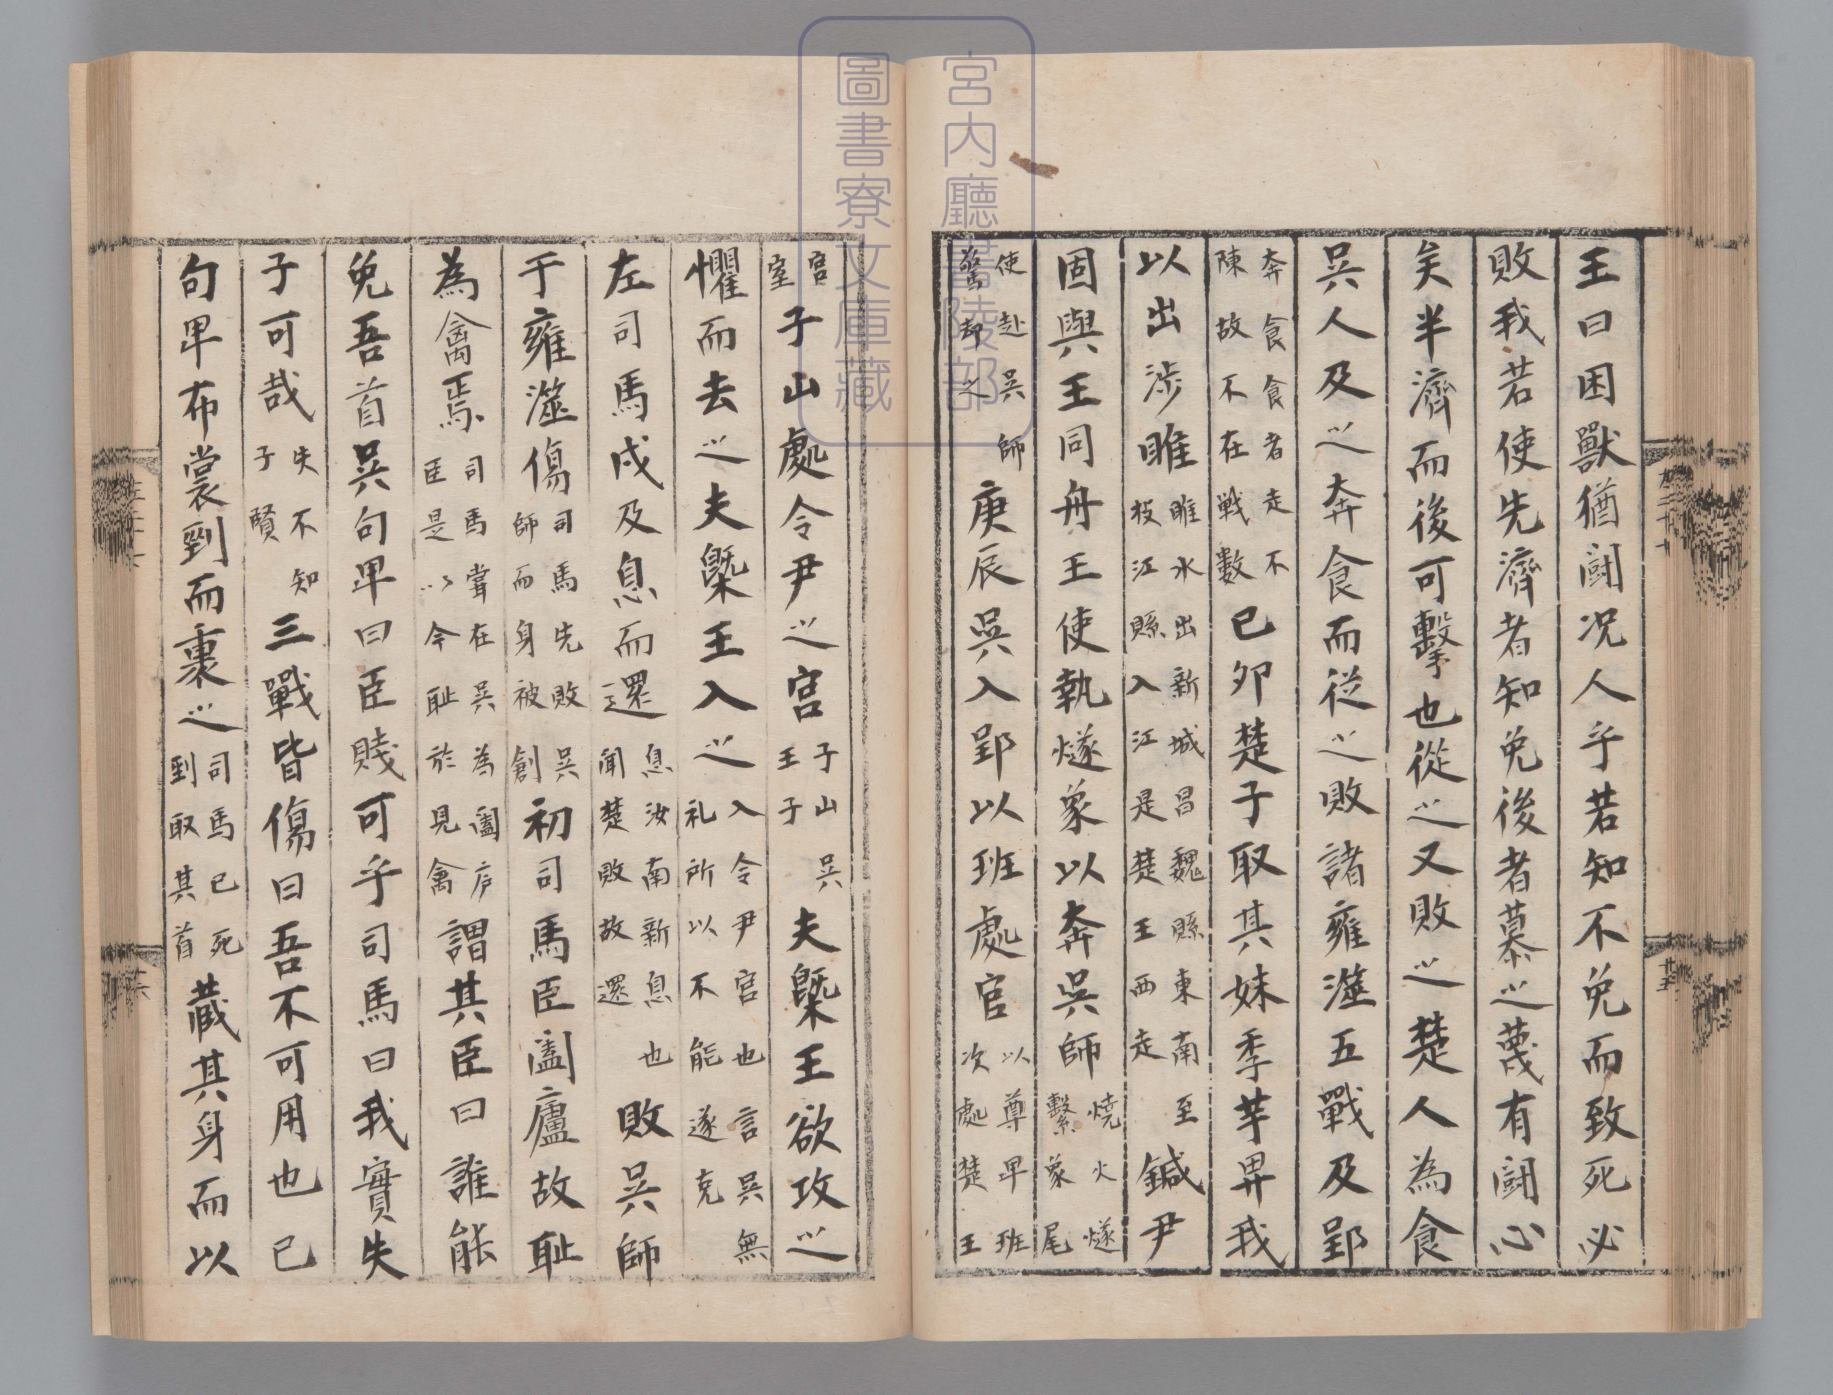 王曰困獸猶鬪况人乎若知不免而致死必
敗我若使先濟者知免後者慕之蔑有鬪心
矣半濟而後可擊也從之又敗之楚人為食
吳人及之奔食而從之敗諸雍澨五戰及郢
奔食食者走不陳故不在戦數已卯楚子取其妹季羋畀我
以出涉睢睢水出新城昌魏縣東南至枝江縣入江是楚王西走鍼尹
固與王同舟王使執燧象以奔吳師燒火燧繫象尾
使赴吳師驚却之庚辰吳入郢以班處宮以尊卑班次處楚王
宮室子山處令尹之宮子山吳王子夫槩王欲攻之
懼而去之夫槩王入之入令尹宮也言吳無礼所以不能遂克
左司馬戌及息而還息汝南新息也聞楚敗故還敗吳師
于雍澨傷司馬先敗吳師而身被創初司馬臣闔廬故耻
為禽焉司馬甞在吳為闔庐臣是以今耻於見禽謂其臣曰誰能
免吾首吳句卑曰臣賤可乎司馬曰我實失
子可哉失不知子賢三戰皆傷曰吾不可用也已
句卑布裳剄而裹之司馬已死剄取其首藏其身而以
宮内廳書陵部
圖書寮文庫藏